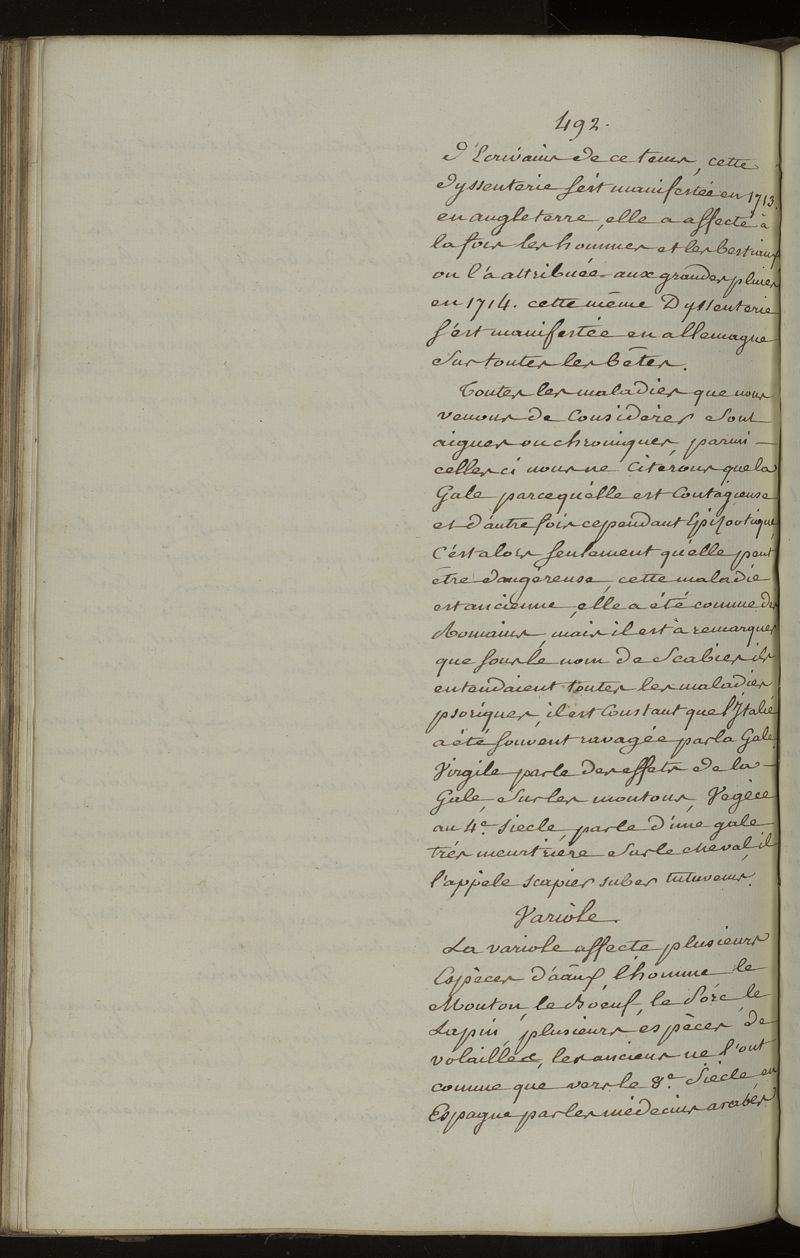 492.
d'Ecrivains de ce tems, cette
dyssenterie s'est manifestée en 1713.
en angleterre, elle a affecté à
la fois les hommes et les bestiaux
on l'a attribuée aux grandes pluies
en 1714. cette même Dyssenterie
s'est manifestée en allemagne
sur toutes les bêtes.
Toutes les maladies que nous
venons de Considerer sont
aigues ou chroniques, parmi —
celles ci nous ne Citerons que la
Gale parcequ'elle est Contagieuse
et d'autre fois cependant Epizootique
C'est alors seulement qu'elle peut
être dangéreuse, cette maladie
est ancienne, elle a été connue des
Romains, mais il est à remarquer
que sous le nom de Scabies ils
entendaient toutes les maladies
psoriques, il est Constant que l'Italie
a été souvent ravagée par la Gale
Virgile parle des effets de la —
Gale, sur les moutons, Vegèce
au 4.e Siecle, parle d'une gale
trés meurtrière sur le cheval, il
l'appèle scapies suber
Variole.
La variole affecte plusieurs
Espèces d'aãux, l'homme le
Mouton, le Boeuf, le Porc, le
Lapin, plusieurs espèces de
volailles, les anciens ne l'ont
connue que vers le 8.e Siecle, en
Espagne par les médecins arabes